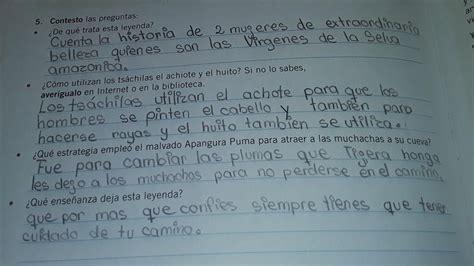 5. Contesto las preguntas:
• ¿De qué trata esta leyenda?
Cuenta la historia de 2 mugeres de extraordinaria
belleza quienes son las Vírgenes de la Selva
amazonica.
• ¿Cómo utilizan los tsáchilas el achiote y el huito? Si no lo sabes,
averígualo en Internet o en la biblioteca.
Los tsáchilas utilizan el achote para que los
hombres se pinten el cabello y también para
hacerse rayas y el huito también se utiliza.
• ¿Qué estrategia empleó el malvado Apangura Puma para atraer a las muchachas a su cueva?
Fue para cambiar las plumas que Tigera honga
les dejo a los muchachos para no perderse en el camino.
• ¿Qué enseñanza deja esta leyenda?
que por mas que confies siempre tienes que tener
cuidado de tu camino.